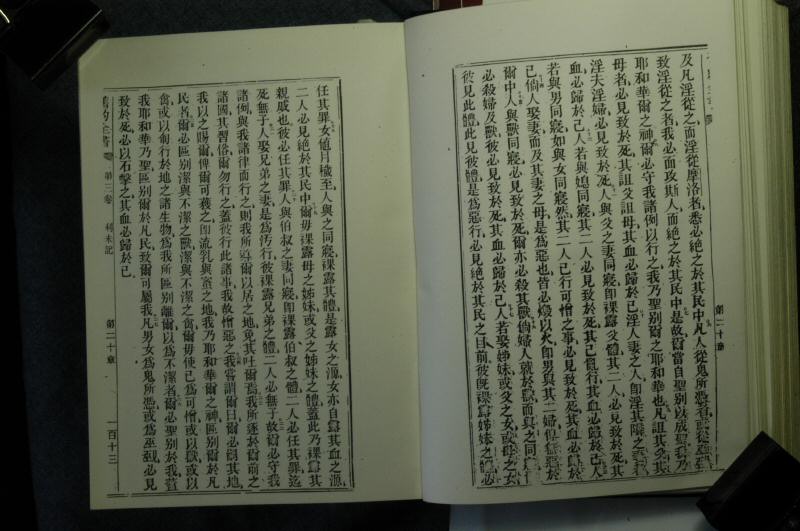 及凡淫從之而淫從摩洛者悉必絕之於其民中凡人從鬼所憑者或從巫
致淫從之者我必面攻斯人而絕之於其民中是故爾當自聖別以成聖我乃
耶和華爾之神爾必守我諸例以行之我乃聖別爾之耶和華也凡詛其父其
母者必見致於死其詛父詛母其血必歸於己淫人妻之人即淫其隣之妻
淫夫淫婦必見致於死人與父之妻同寢裸露父體其二人必見致於死其
血必歸於己人若與媳同寢其二人必見致於死其己亂行其血必歸於己人
若與男同寢如與女同寢然其二人已行可憎之事必見致於死其血必歸於
己倘人娶妻而及其妻之母是為惡也皆必燬以火即男與其二婦
爾中人與獸同寢必見致於死爾亦必殺其獸倘婦人就於獸而與之同
必殺婦及獸彼必見致於死其血必歸於己人若娶姊妹或父之女或母之女
彼見此體此見彼體是為惡行必見絕於其民之目前彼旣裸露姊妹之體必
第二十章
任其罪女値月穢至人與之同寢裸露其體是露女之源女亦自露其血之源
二人必見絕於其民中爾毋裸露母之姊妹或父之姊妹之體蓋此乃裸露其
親戚也彼必任其罪人與伯叔之妻同寢即裸露伯叔之體二人必任其罪迄
死無子人娶兄弟之妻是為汚行彼裸露兄弟之體二人必無子故爾必守我
諸例與我諸律而行之則我所導爾以居之地免其吐爾焉我所逐於爾前之
諸國其習俗爾勿行之蓋彼行此諸事我故憎惡之我嘗謂爾曰爾必嗣其地
我以之賜爾俾爾可獲之即流乳與蜜之地我乃耶和華爾之神區別爾於凡
民者爾必區別潔與不潔之獸潔與不潔之禽爾毋使己為可憎或以獸或以
禽或以匍行於地之諸生物為我所區別離爾以為不潔者爾必聖別於我蓋
我耶和華乃聖區別爾於凡民致爾可屬我凡男女為鬼所憑或為巫覡必見
致於死必以石擊之其血必歸於己
舊約全書 第三卷 利未記 第二十章 一百十三